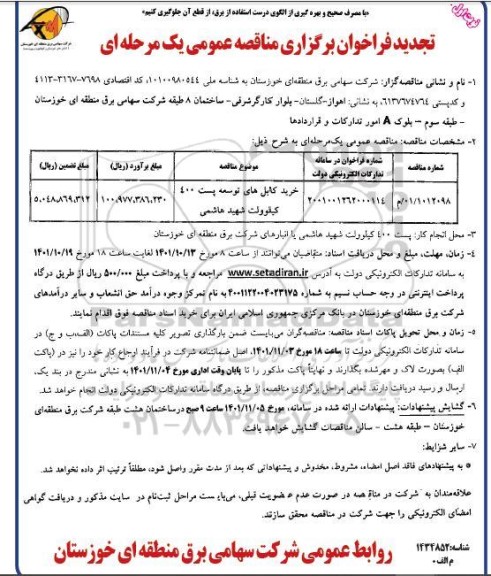 «با مصرف صحیح و بهره گیری از الگوی درست استفاده از برق، از قطع آن جلوگیری کنیم»
شرکت سهامی برق منطقه ای خوزستان
تجدید فراخوان برگزاری مناقصه عمومی یک مرحله ای
۱- نام و نشانی مناقصه‌گزار: شرکت سهامی برق منطقه‌ای خوزستان به شناسه ملی ۱۰۱۰۰۹۸۰۵۴۴، کد اقتصادی ۷۷۹۸-۳۱۶۷-۴۱۱۳
و کدپستی ۶۱۳۷۶۷۴۷۶۴، به نشانی: اهواز-گلستان- بلوار کارگرشرقی- ساختمان ۸ طبقه شرکت سهامی برق منطقه ای خوزستان
- طبقه سوم – بلوک A امور تدارکات و قراردادها
۲- مشخصات مناقصه: مناقصه عمومی یک‌مرحله‌ای به شرح ذیل:
شماره مناقصه | شماره فراخوان در سامانه تدارکات الکترونیکی دولت | موضوع مناقصه | مبلغ برآورد (ریال) | مبلغ تضمین (ریال)
۰۱/۱۰۱۲۰۹۸/م | ۲۰۰۱۰۰۱۲۶۲۰۰۰۱۱۴ | خرید کابل های توسعه پست ۴۰۰ کیلوولت شهید هاشمی | ۱۰۰،۹۷۷،۳۸۶،۲۳۰ | ۵،۰۴۸،۸۶۹،۳۱۲
۳- محل انجام کار: پست ۴۰۰ کیلوولت شهید هاشمی یا انبارهای شرکت برق منطقه ای خوزستان
۴- زمان، مهلت، مبلغ و محل دریافت اسناد: متقاضیان می‌توانند از ساعت ۸ مورخ ۱۴۰۱/۱۰/۱۳ لغایت ساعت ۱۸ مورخ ۱۴۰۱/۱۰/۱۹
به سامانه تدارکات الکترونیکی دولت به آدرس www.setadiran.ir مراجعه و با پرداخت مبلغ ۵۰۰/۰۰۰ ریال از طریق درگاه
پرداخت اینترنتی در وجه حساب نسیم به شماره ۴۰۰۱۱۲۲۰۰۴۰۲۳۱۷۵ به نام تمرکز وجوه درآمد حق انشعاب و سایر درآمدهای
شرکت برق منطقه‌ای خوزستان در بانک مرکزی جمهوری اسلامی ایران برای خرید اسناد مناقصه فوق اقدام نمایند.
۵- زمان و محل تحویل پاکات اسناد مناقصه: مناقصه‌گران می‌بایست ضمن بارگذاری تصویر کلیه مستندات پاکات (الف،ب و ج) در
سامانه تدارکات الکترونیکی دولت تا ساعت ۱۸ مورخ ۱۴۰۱/۱۱/۰۳، اصل ضمانتنامه شرکت در فرآیند ارجاع کار خود را نیز در (پاکت
الف) بصورت لاک و مهرشده بگذارند و نهایتاً پاکت مذکور را تا پایان وقت اداری مورخ ۱۴۰۱/۱۱/۰۴ به نشانی مندرج در بند یک،
ارسال و رسید دریافت دارند. تمامی مراحل برگزاری مناقصه، از طریق درگاه سامانه تدارکات الکترونیکی دولت انجام خواهد شد.
۶- گشایش پیشنهادات: پیشنهادات ارائه شده در سامانه، مورخ ۱۴۰۱/۱۱/۰۵ ساعت ۹ صبح درساختمان هشت طبقه شرکت برق منطقه‌ای
خوزستان – طبقه هشت - سالن مناقصات گشایش خواهد یافت.
۷- سایر شرایط:
* به پیشنهادهای فاقد اصل امضاء، مشروط، مخدوش و پیشنهاداتی که بعد از مدت مقرر واصل شود، مطلقاً ترتیب اثر داده نخواهد شد.
علاقه‌مندان به شرکت در مناقصه در صورت عدم عضویت قبلی، می‌بایست مراحل ثبت‌نام در سایت مذکور و دریافت گواهی
امضای الکترونیکی را جهت شرکت در مناقصه محقق سازند.
شناسه: ۱۴۳۴۸۵۲
م الف:
روابط عمومی شرکت سهامی برق منطقه ای خوزستان